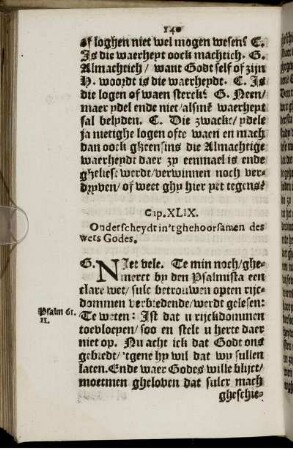 140
of loghen niet wel mogen wesen? C.
Is die waerheyt oock machtich. G.
Almachtich / want Godt self of zijn
H. woordt is die waerheydt. C. Is
die logen of waen sterck? G. Neen /
maer ydel ende niet / alsmē waerheyt
sal belyden. C. Die zwacke / ydele
ja nietighe logen ofte waen en mach
dan oock gheensins die Almachtige
waerheydt daer zy eenmael is ende
ghelieft werdt / verwinnen noch ver-
dryven / of weet ghy hier yet tegens?
Cap. XLIX.
Onderscheydt in't ghehoorsamen des
wets Godes.
G. NIet vele. Te min noch / ghe-
merct by den Psalmista een
clare wet / sulc betrouwen opten rijc-
dommen verbiedende / werdt gelesen:
Psalm 61.
11.
Te weten: Ist dat u rijckdommen
toevloeyen / soo en stelt u herte daer
niet op. Nu acht ick dat Godt ons
gebiedt / 'tgene hy wil dat wy sullen
laten. Ende waer Godes wille blijct /
moetmen gheloven dat sulcx mach
gheschie-